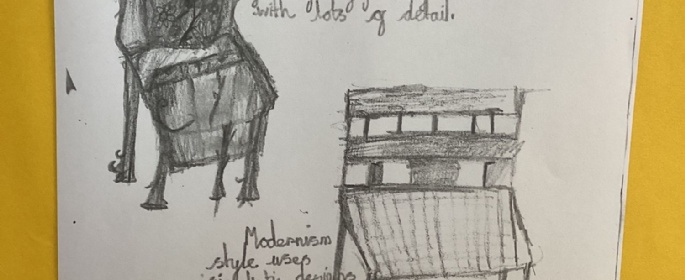 with lots of detail.
Modernism
style uses
designs